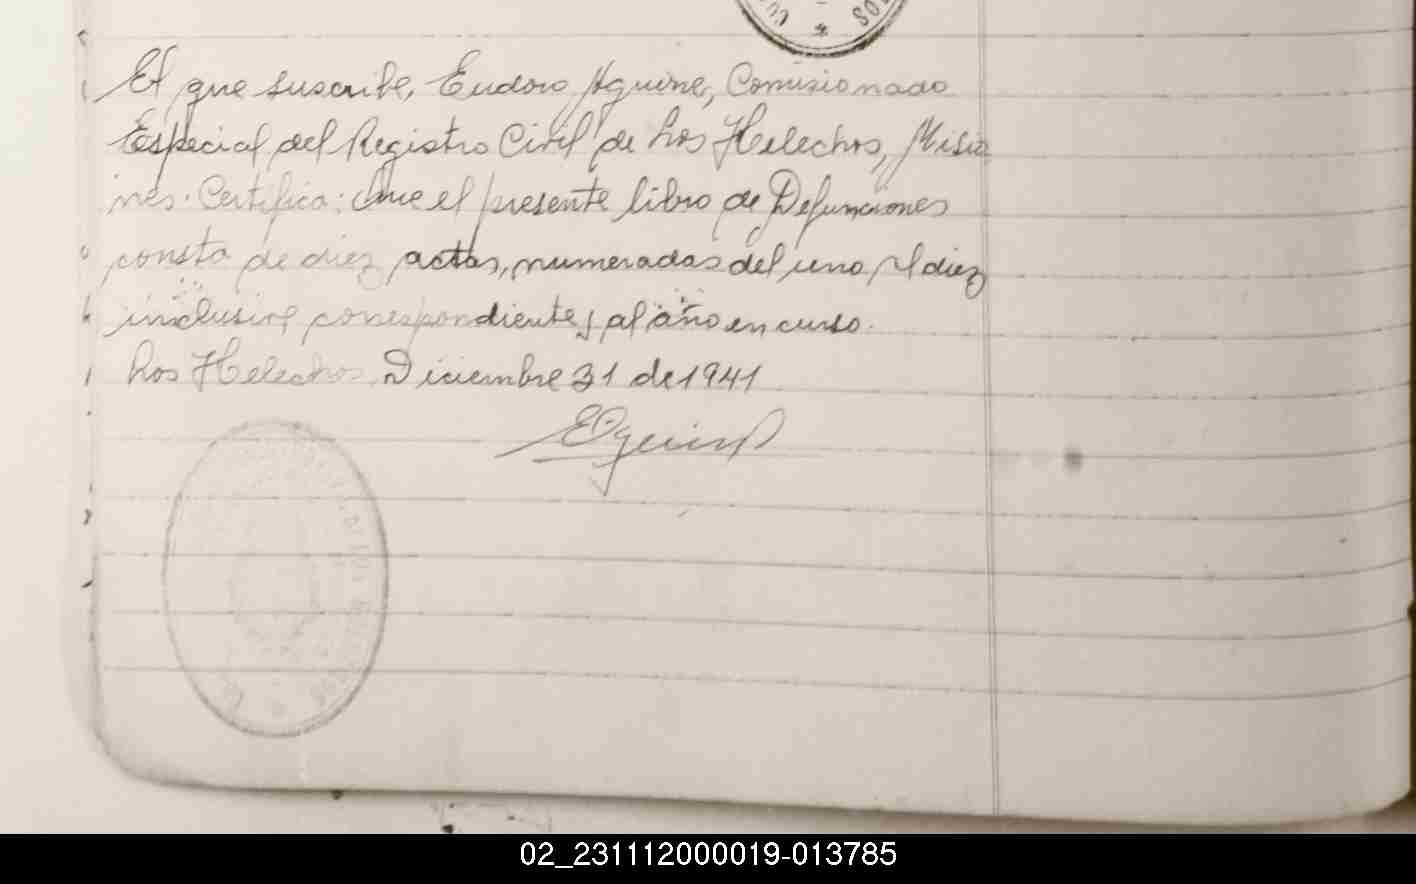 El que suscribe, Eudoro Aguirre, Comisionado
Especial del Registro Civil de Los Helechos, Misio
nes. Certifica: Que el presente libro de Defunciones
consta de diez actas, numeradas del uno al diez
inclusive correspondientes al año en curso.
Los Helechos Diciembre 31 de 1941
02_231112000019-013785